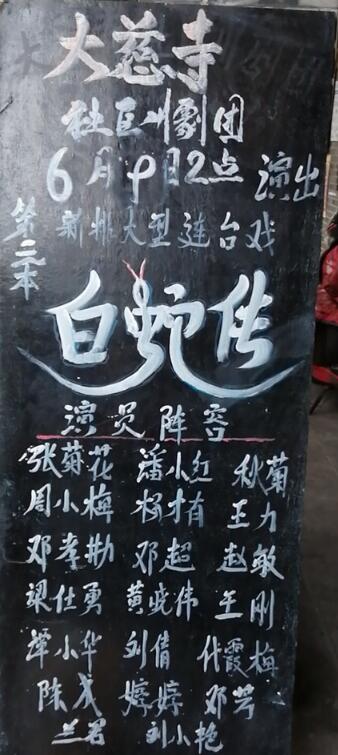 大慈寺
社区川剧团
6月9日2点 演出
新排大型连台戏
第二本
白蛇传
演员阵容
张菊花 潘小红 秋菊
周小梅 杨才有 王力
邓孝勤 邓超 赵敏
梁仕勇 黄晓伟 王刚
谭小华 刘倩 代霞梅
陈戈 婷婷 邓芳
兰君 刘小艳